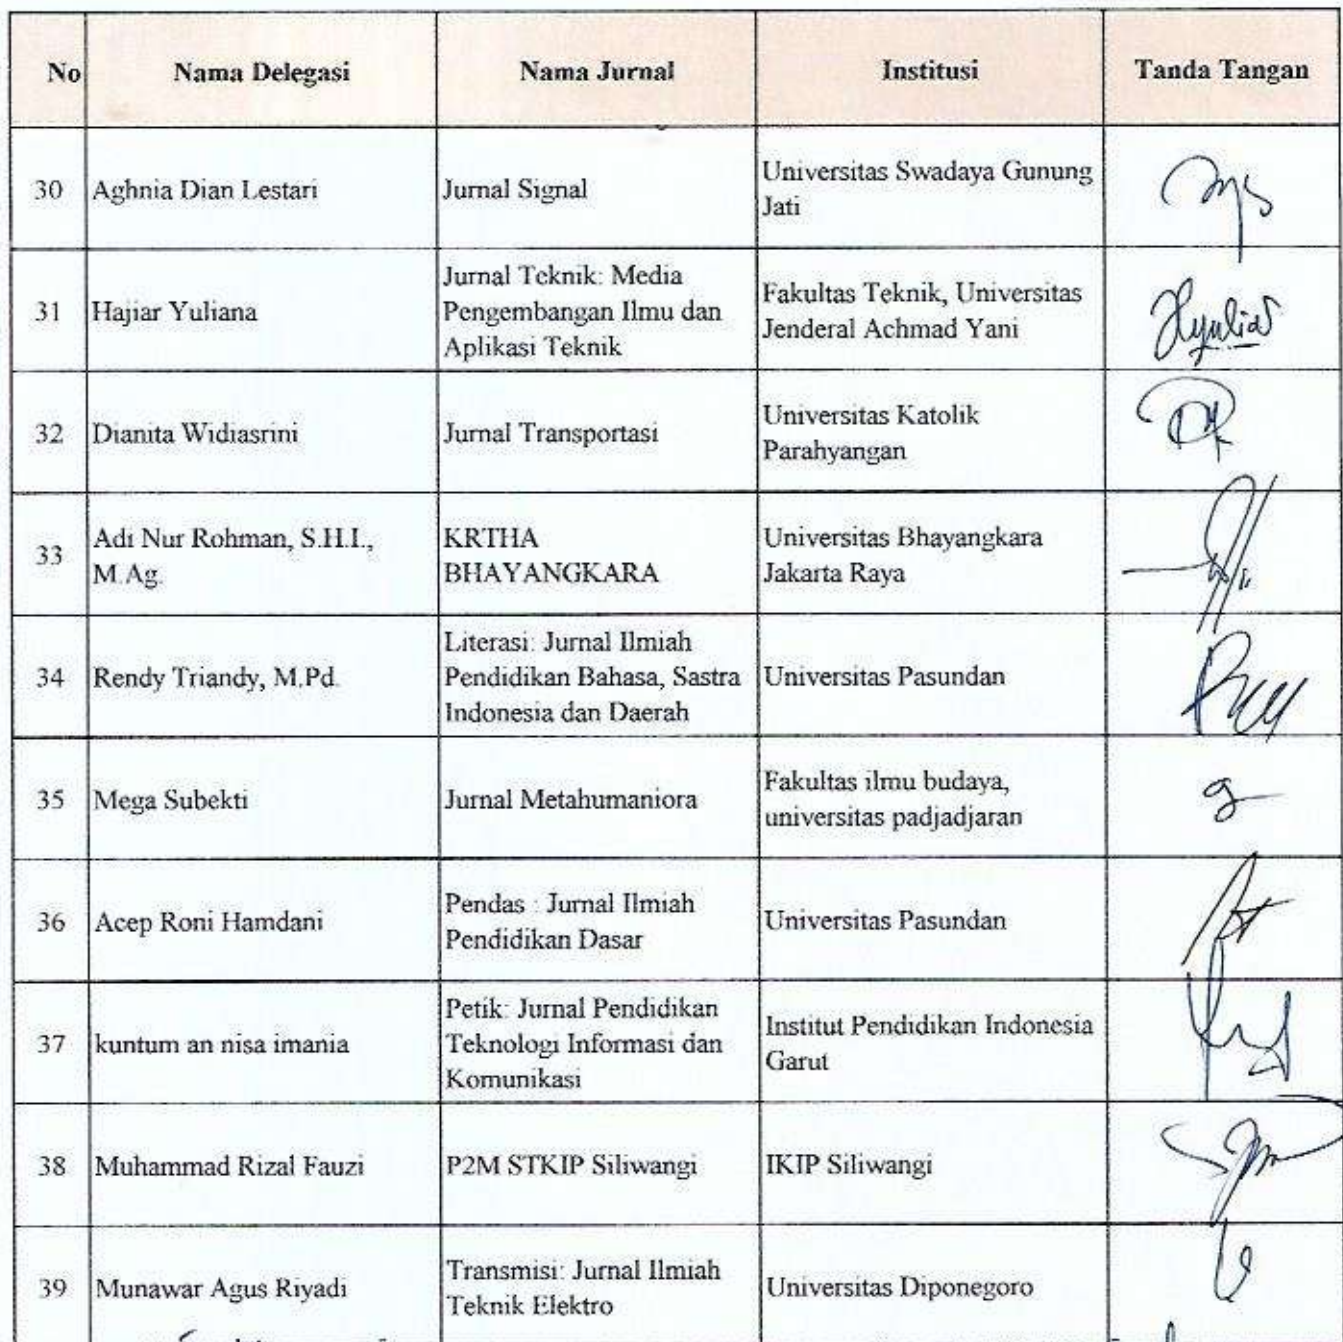 No Nama Delegasi Nama Jurnal Institusi Tanda Tangan
30 Aghnia Dian Lestari Jurnal Signal Universitas Swadaya Gunung
Jati
31 Hajiar Yuliana Jurnal Teknik: Media
Pengembangan Ilmu dan
Aplikasi Teknik
Fakultas Teknik, Universitas
Jenderal Achmad Yani
Hyulia
32 Dianita Widiasrini Jurnal Transportasi Universitas Katolik
Parahyangan
33 Adi Nur Rohman, S.H.I.,
M.Ag.
KRTHA
BHAYANGKARA
Universitas Bhayangkara
Jakarta Raya
34 Rendy Triandy, M.Pd.
Literasi: Jurnal Ilmiah
Pendidikan Bahasa, Sastra
Indonesia dan Daerah
Universitas Pasundan
35 Mega Subekti Jurnal Metahumaniora Fakultas ilmu budaya,
universitas padjadjaran
36 Acep Roni Hamdani Pendas : Jurnal Ilmiah
Pendidikan Dasar
Universitas Pasundan
37 kuntum an nisa imania Petik: Jurnal Pendidikan
Teknologi Informasi dan
Komunikasi
Institut Pendidikan Indonesia
Garut
38 Muhammad Rizal Fauzi P2M STKIP Siliwangi IKIP Siliwangi
39 Munawar Agus Riyadi Transmisi: Jurnal Ilmiah
Teknik Elektro
Universitas Diponegoro